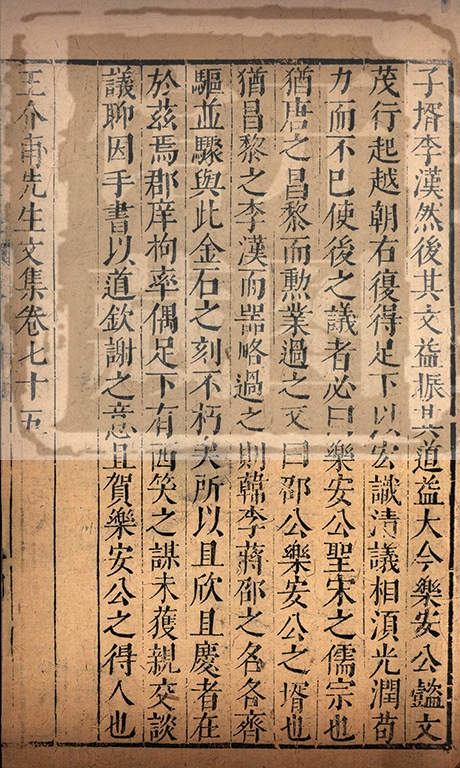 子壻李漢然後其文益振其道益大今樂安公懿文
茂行起越朝右復得足下以宏識清議相須光潤苟
力而不已使後之議者必曰樂安公聖宋之儒宗也
猶唐之昌黎而勲業過之又曰邵公樂安公之壻也
猶昌黎之李漢而器略過之則韓李蔣邵之名各齊
驅並驟與此金石之刻不朽矣所以且欣且慶者在
於茲焉郡庠拘率偶足下有西笑之謀未獲親交談
議聊因手書以道欽謝之意且賀樂安公之得人也
王介甫先生文集卷七十五